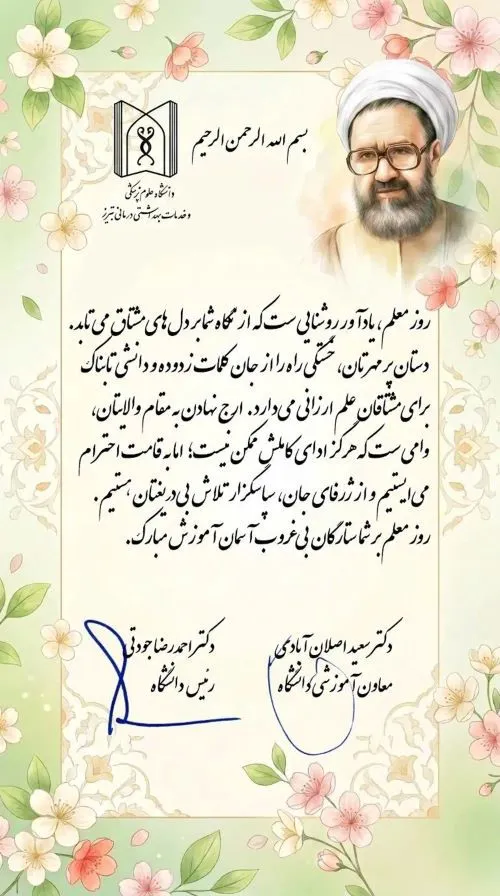 بسم الله الرحمن الرحیم
دانشگاه علوم پزشکی
و خدمات بهداشتی درمانی تبریز
روز معلم، یادآور روشنایی ست که از نگاه شما بر دل های مشتاق می تابد.
دستان پر مهرتان، خستگی راه را از جان کلمات زدوده و دانشی تابناک
برای مشتاقان علم ارزانی می دارد. ارج نهادن به مقام والایتان،
وامی ست که هرگز ادای کاملش ممکن نیست؛ اما به قامت احترام
می ایستیم و از ژرفای جان، سپاسگزار تلاش بی دریغتان هستیم.
روز معلم بر شما ستارگان بی غروب آسمان آموزش مبارک.
دکتر سعید اصلان آبادی
معاون آموزشی دانشگاه
دکتر احمدرضا جودتی
رئیس دانشگاه